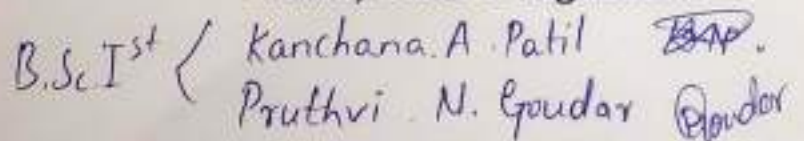 B.Sc Ist < Kanchana. A. Patil
Pruthvi. N. Goudar Goudar